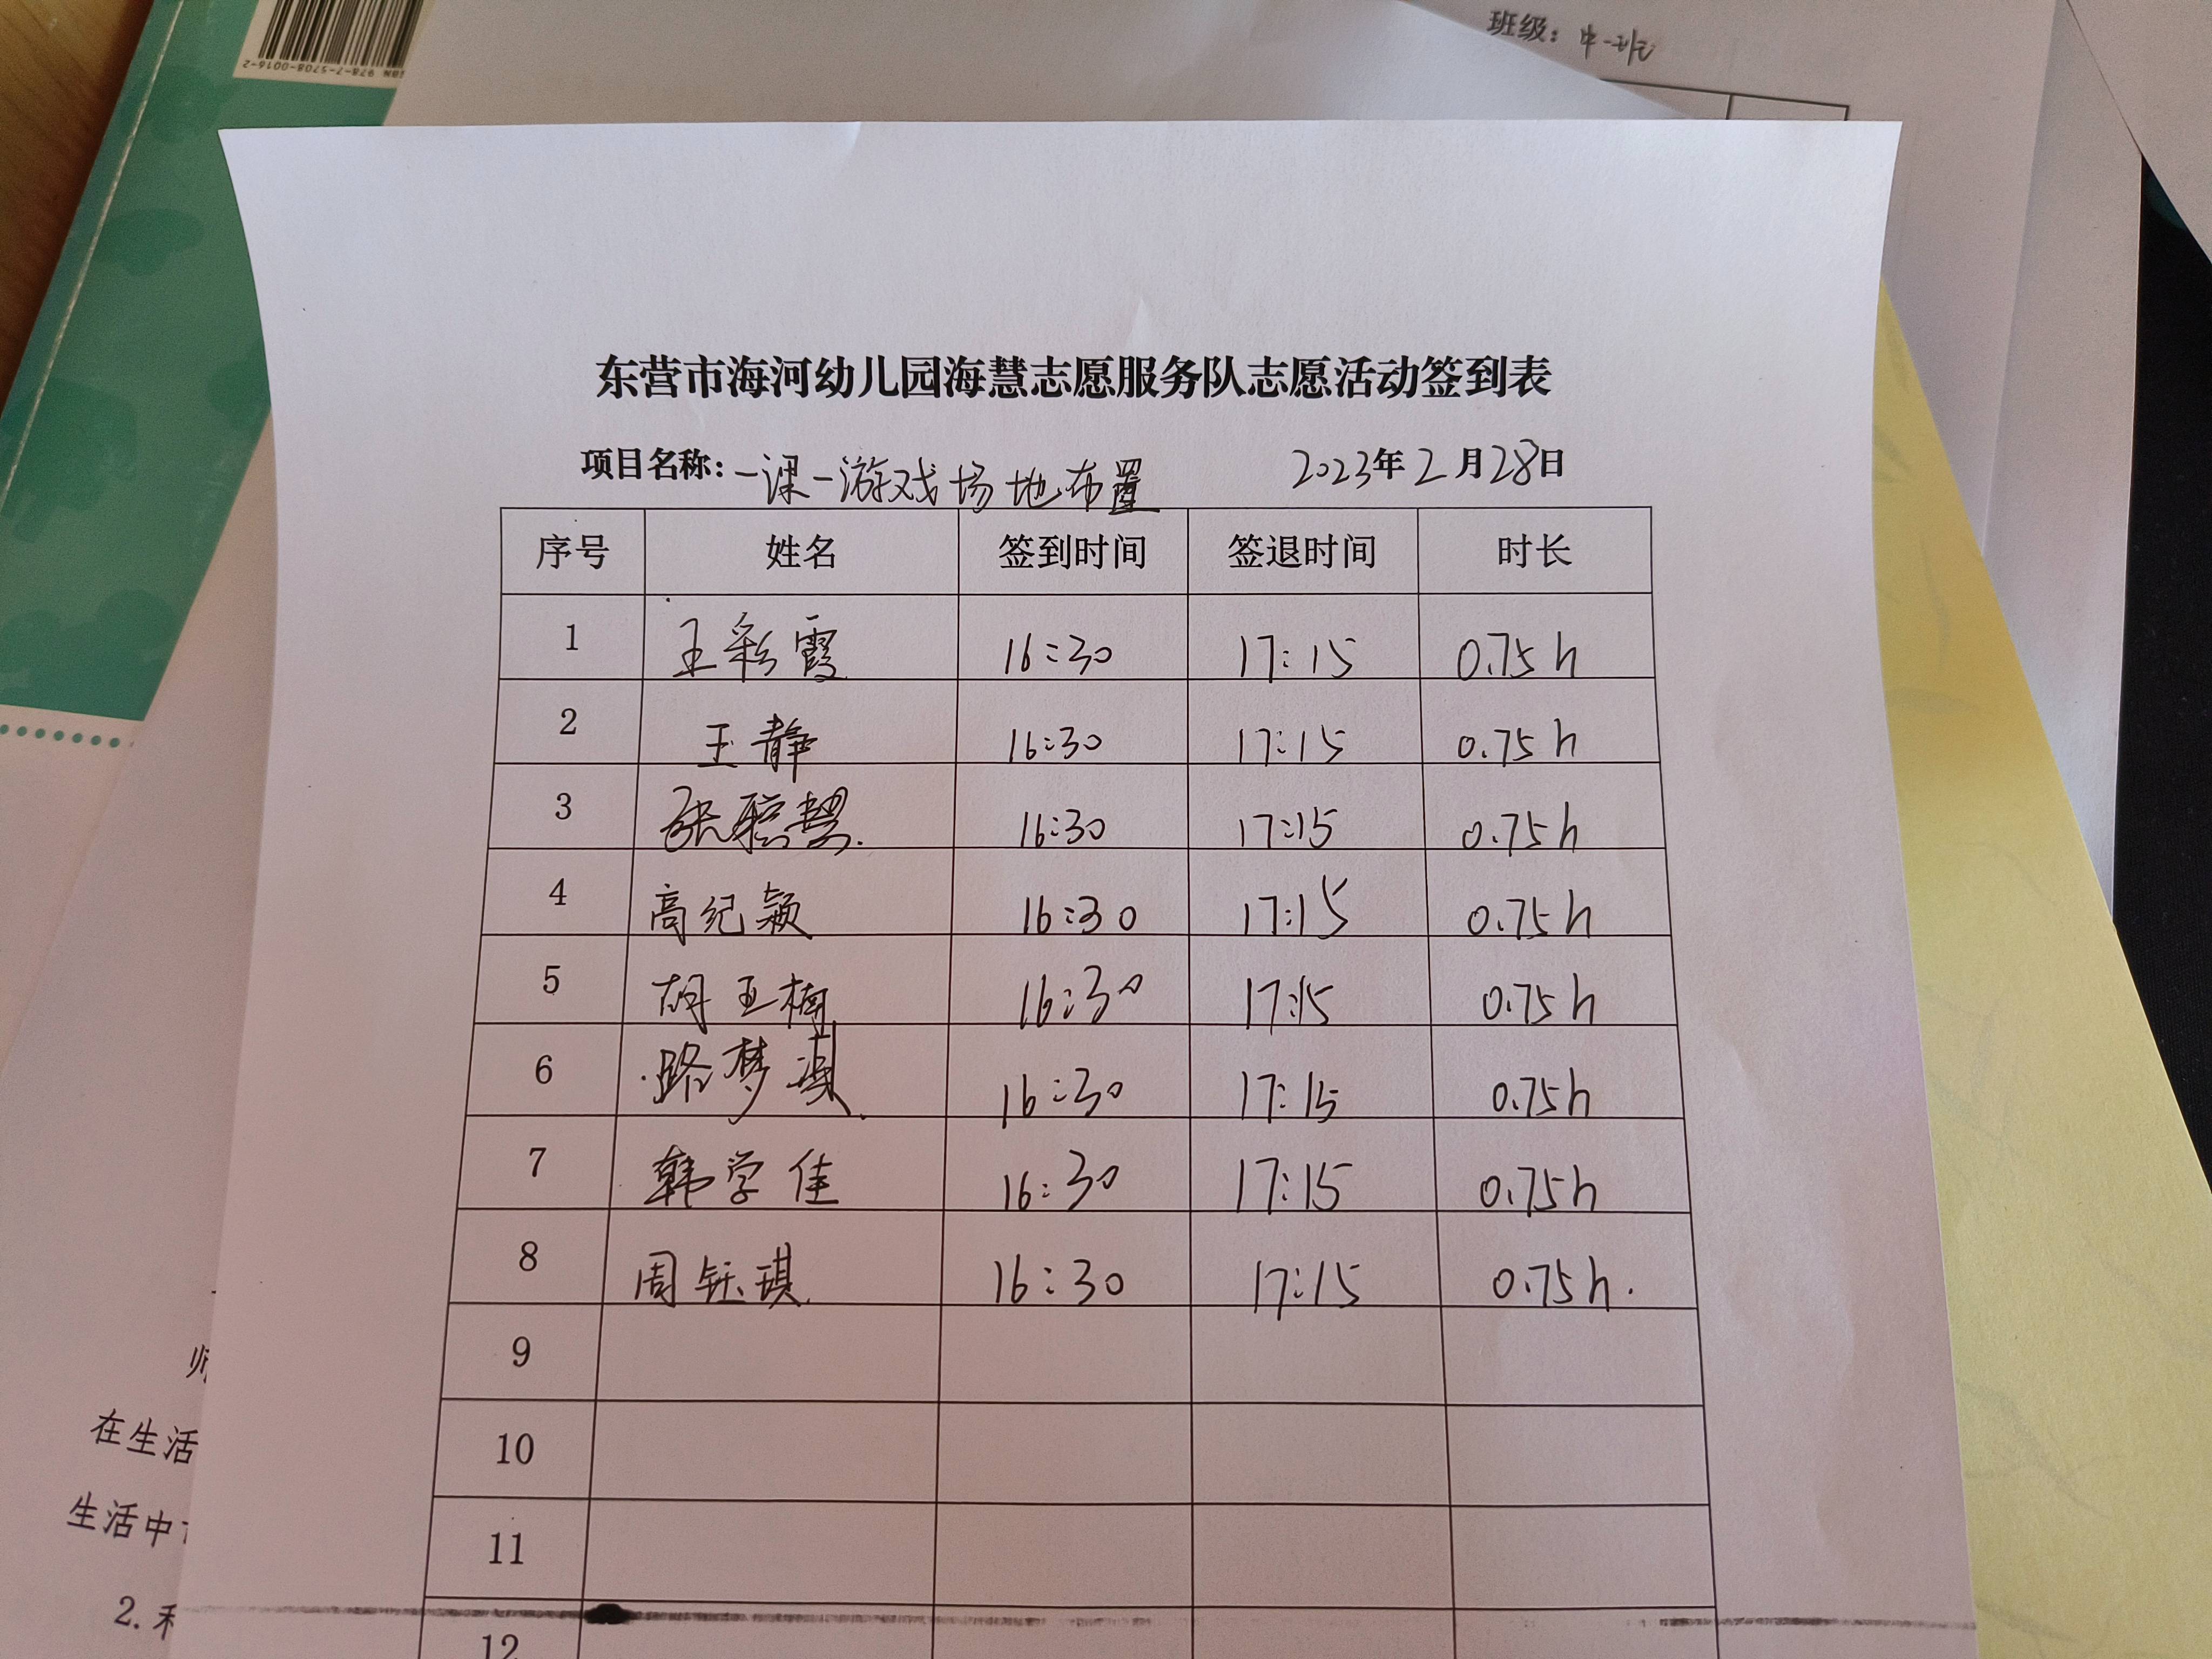 ISBN 978-7-5708-0016-2
班级：中一班
东营市海河幼儿园海慧志愿服务队志愿活动签到表
项目名称：一课一游戏场地布置 2023年2月28日
序号 姓名 签到时间 签退时间 时长
1 王彩霞 16:30 17:15 0.75h
2 王静 16:30 17:15 0.75h
3 张聪慧. 16:30 17:15 0.75h
4 高纪颖 16:30 17:15 0.75h
5 胡亚楠 16:30 17:15 0.75h
6 路梦 16:30 17:15 0.75h
7 韩学佳 16:30 17:15 0.75h
8 周钰琪. 16:30 17:15 0.75h.
9
10
11
12
师
在生活
生活中
2.